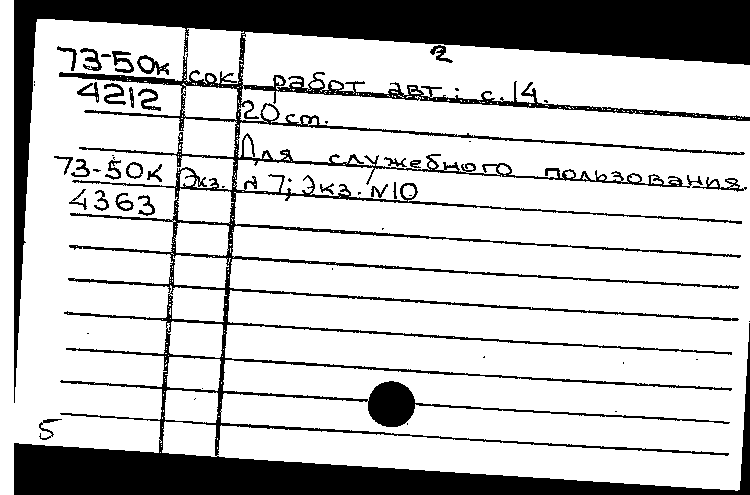 2
73-50к сок работ авт.: с.14.
4212 20 cm.
Для служебного пользования.
73-50К Экз. N 7; Экз. N10
4363
5